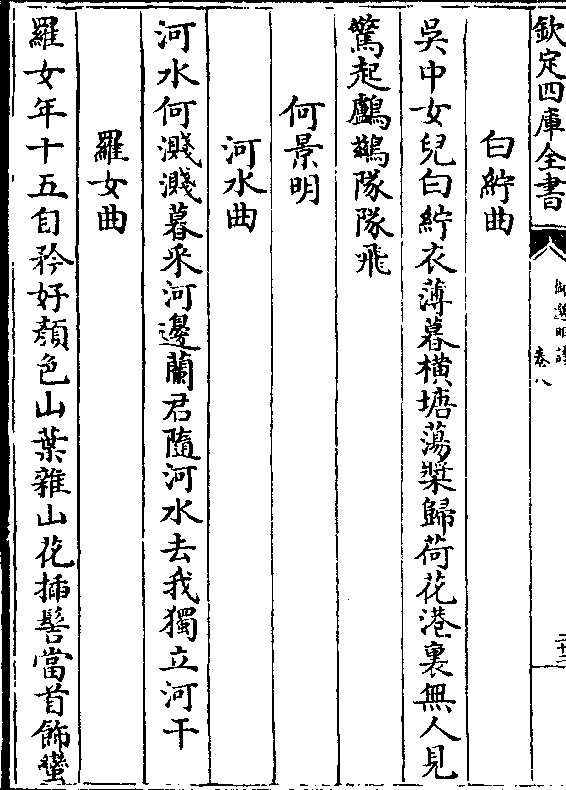 欽定四庫全書
卷八
白紵曲
吳中女兒白紵衣薄暮橫塘蕩槳歸荷花港裏無人見
驚起鸕鷀隊隊飛
何景明
河水曲
河水何濺濺暮采河邊蘭君隨河水去我獨立河干
羅女曲
羅女年十五自矜好顏色山葉雜山花揷髻當首飾蠻